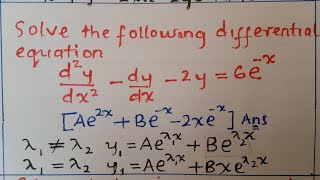 Solve the following differential
equation
d²y/dx² - dy/dx - 2y = 6e^-x
[Ae^2x + Be^-x - 2xe^-x] Ans
λ₁ ≠ λ₂ y₁ = Ae^λ₁x + Be^λ₂x
λ₁ = λ₂ y₁ = Ae^λ₁x + Bxe^λ₂x